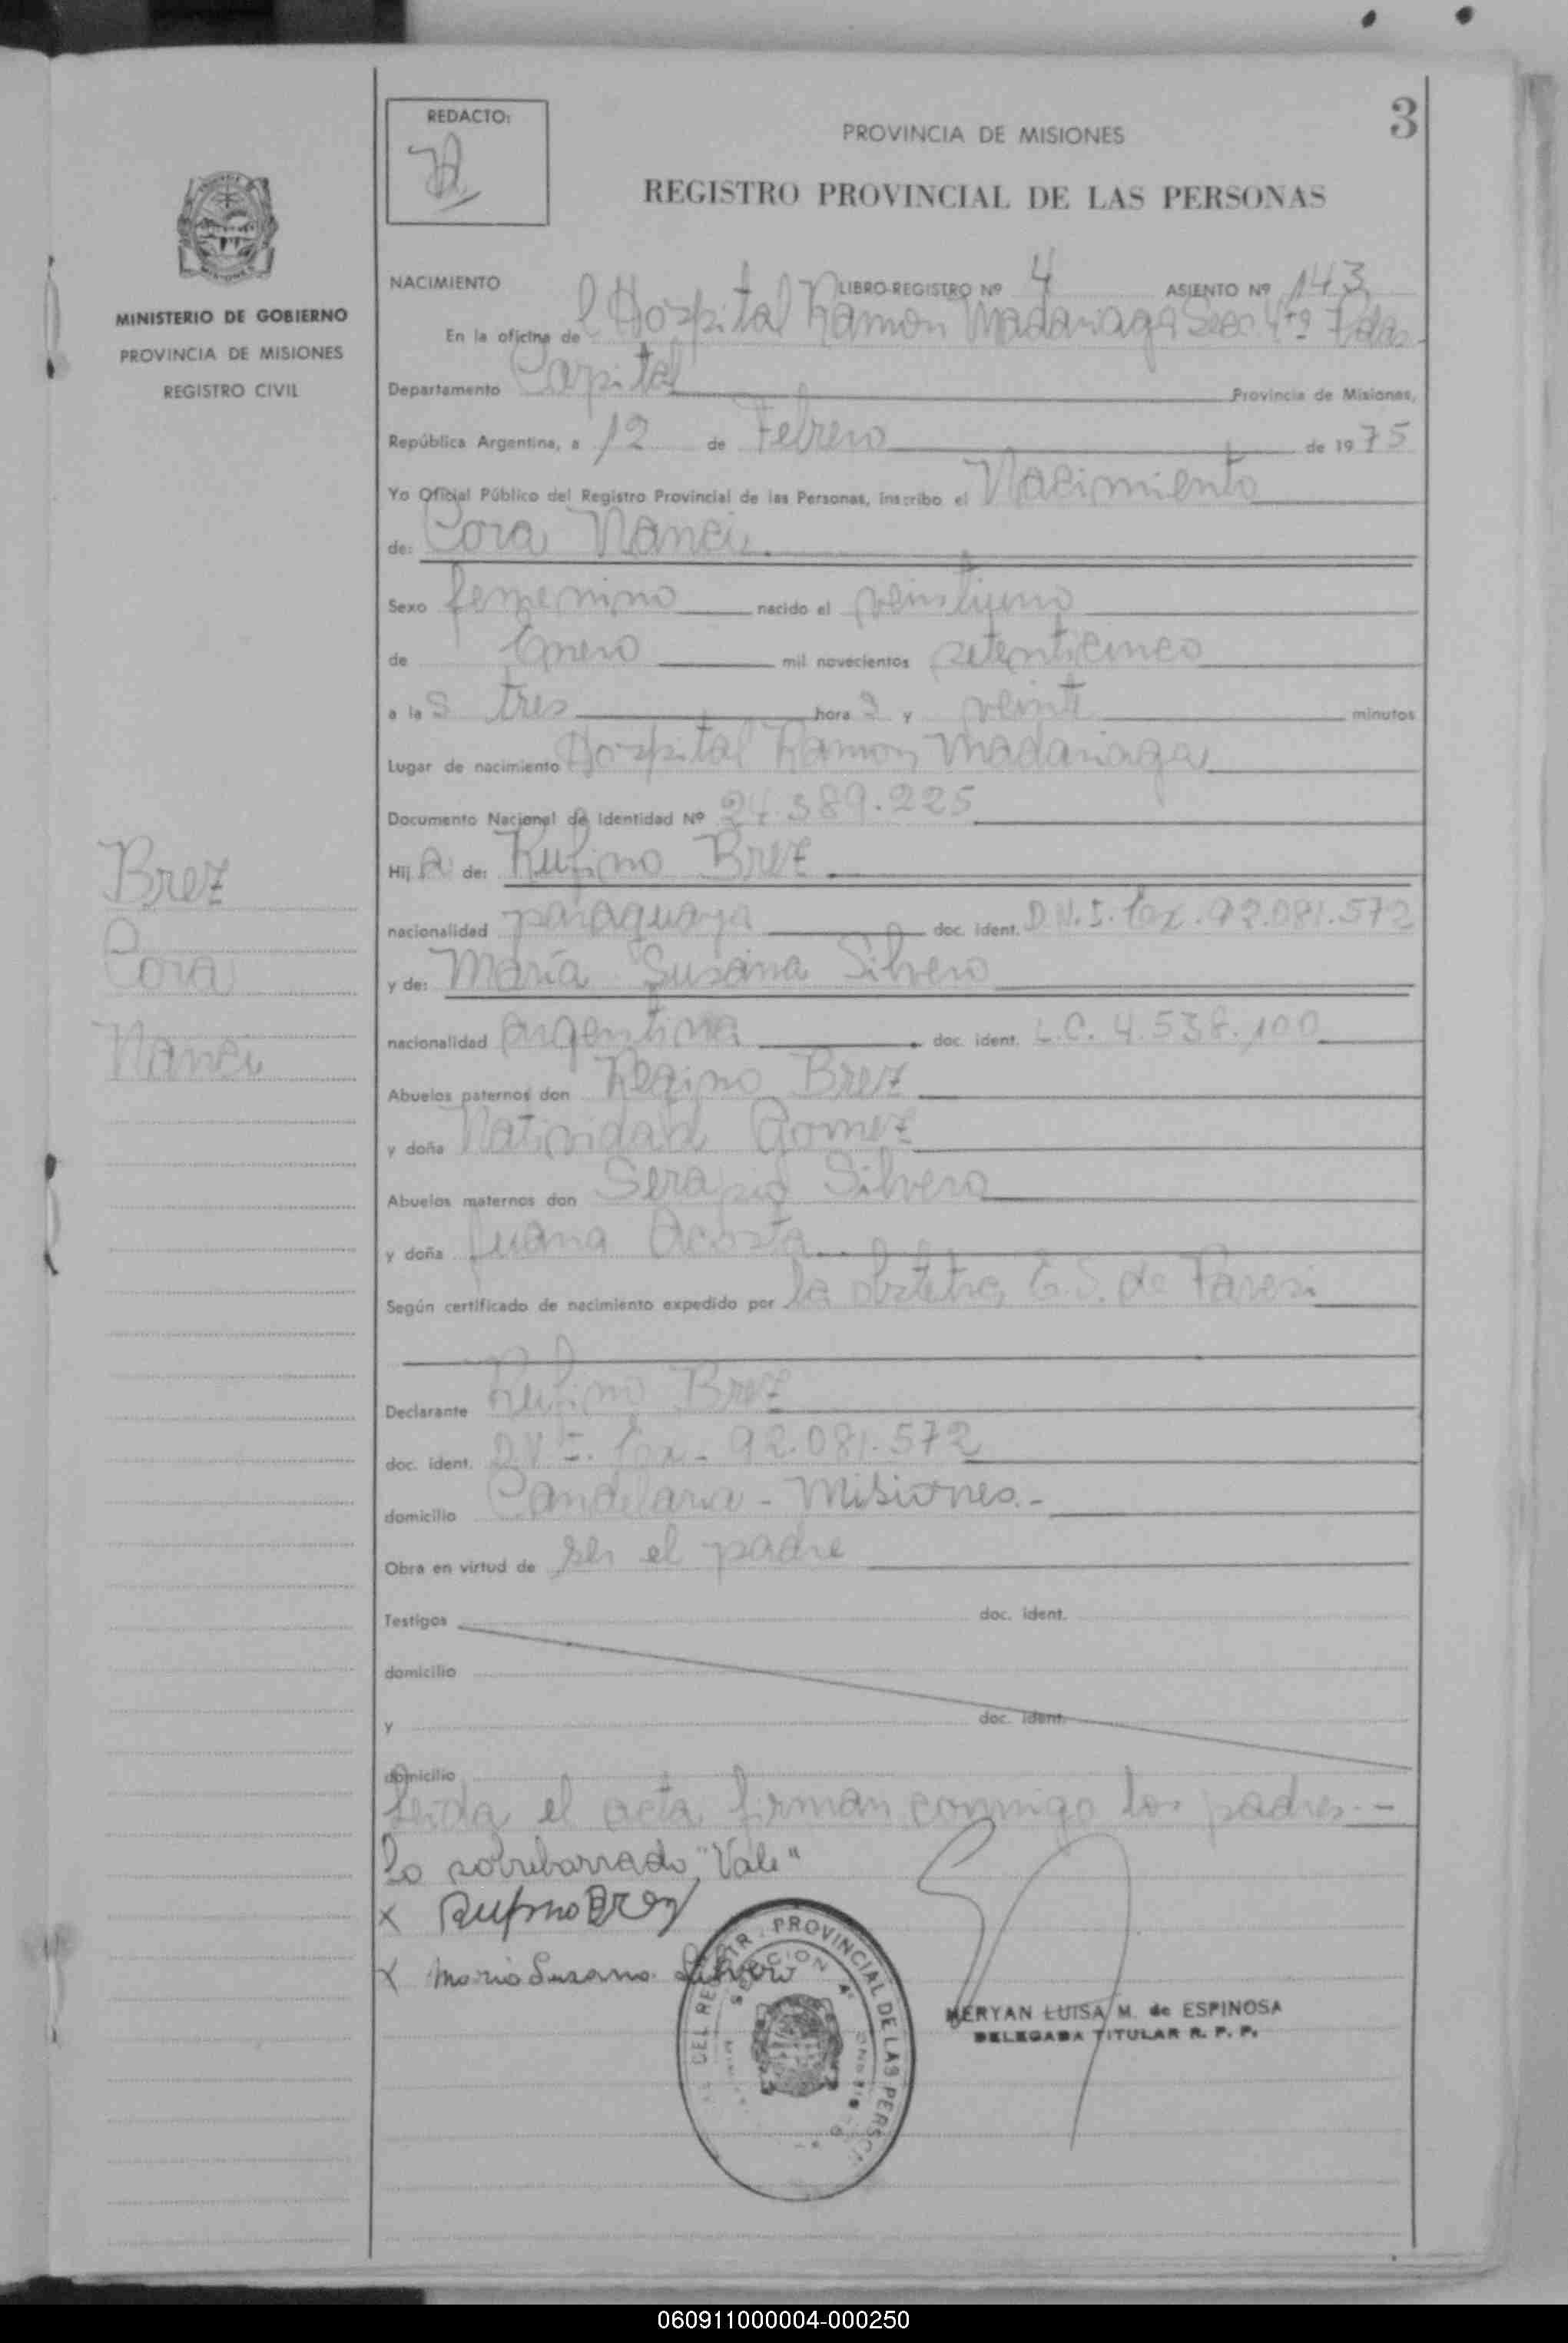 3
REDACTO:
PROVINCIA DE MISIONES
REGISTRO PROVINCIAL DE LAS PERSONAS
MINISTERIO DE GOBIERNO
PROVINCIA DE MISIONES
REGISTRO CIVIL
NACIMIENTO LIBRO-REGISTRO Nº 4 ASIENTO Nº 143
En la oficina de l Hospital Ramon Madariaga Secc 4ta Pdas
Departamento Capital Provincia de Misiones,
República Argentina, a 12 de Febrero de 1975
Yo Oficial Público del Registro Provincial de las Personas, inscribo el Nacimiento
de: Cora Nanci
Sexo femenino nacido el veintiuno
de Enero mil novecientos setenticinco
a las tres horas y veinte minutos
Lugar de nacimiento Hospital Ramon Madariaga
Documento Nacional de Identidad Nº 24.389.225
Hija de: Rufino Brez
nacionalidad paraguaya doc. ident. D.N.I. Ex. 92.081.572
y de: María Susana Silvero
nacionalidad argentina doc. ident. L.C. 4.538.100
Abuelos paternos don Regino Brez
y doña Natividad Gomez
Abuelos maternos don Serapio Silvero
y doña Juana Acosta
Según certificado de nacimiento expedido por la obstetra E.S. de Paresi
Declarante Rufino Brez
doc. ident. D.N.I. Ex - 92.081.572
domicilio Candelaria - Misiones.-
Obra en virtud de ser el padre
Testigos doc. ident.
domicilio
y doc. ident.
domicilio
Leida el acta firman conmigo los padres.-
Lo sobrebarrado "Vale"
x Rufino Brez
x Maria Susana Silvero
Brez
Cora
Nanci
DEL REGISTR. PROVINCIAL DE LAS PERSO
SECCION 4ª
MERYAN LUISA M. de ESPINOSA
DELEGADA TITULAR R. P. P.
060911000004-000250